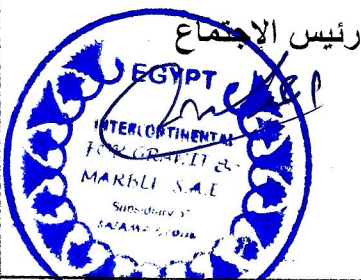 رئيس الإجتماع
EGYPT
INTERCONTINENTAL
FOR GRANIT &
MARBLE S.A.E
Subsidiary